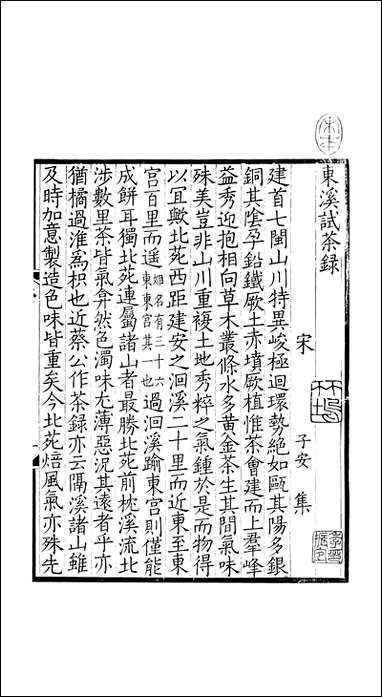 東溪試茶録
宋 子安 集
建首七閩山川特異峻極迴環勢絶如甌其陽多銀
銅其隂孕鉛鐵厥土赤墳厥植惟茶會建而上羣峰
益秀迎抱相向草木叢條水多黄金茶生其間氣味
殊美豈非山川重複土地秀粹之氣鍾於是而物得
以冝歟北苑西距建安之洄溪二十里而近東至東
宫百里而遥姬名有三十六東東宫其一也過洄溪踰東宫則僅能
成餅耳獨北苑連屬諸山者最勝北苑前枕溪流北
涉數里茶皆氣弇然色濁味尤薄惡況其遠者乎亦
猶橘過淮為枳也近蔡公作茶録亦云隔溪諸山雖
及時加意製造色味皆重矣今北苑焙風氣亦殊先